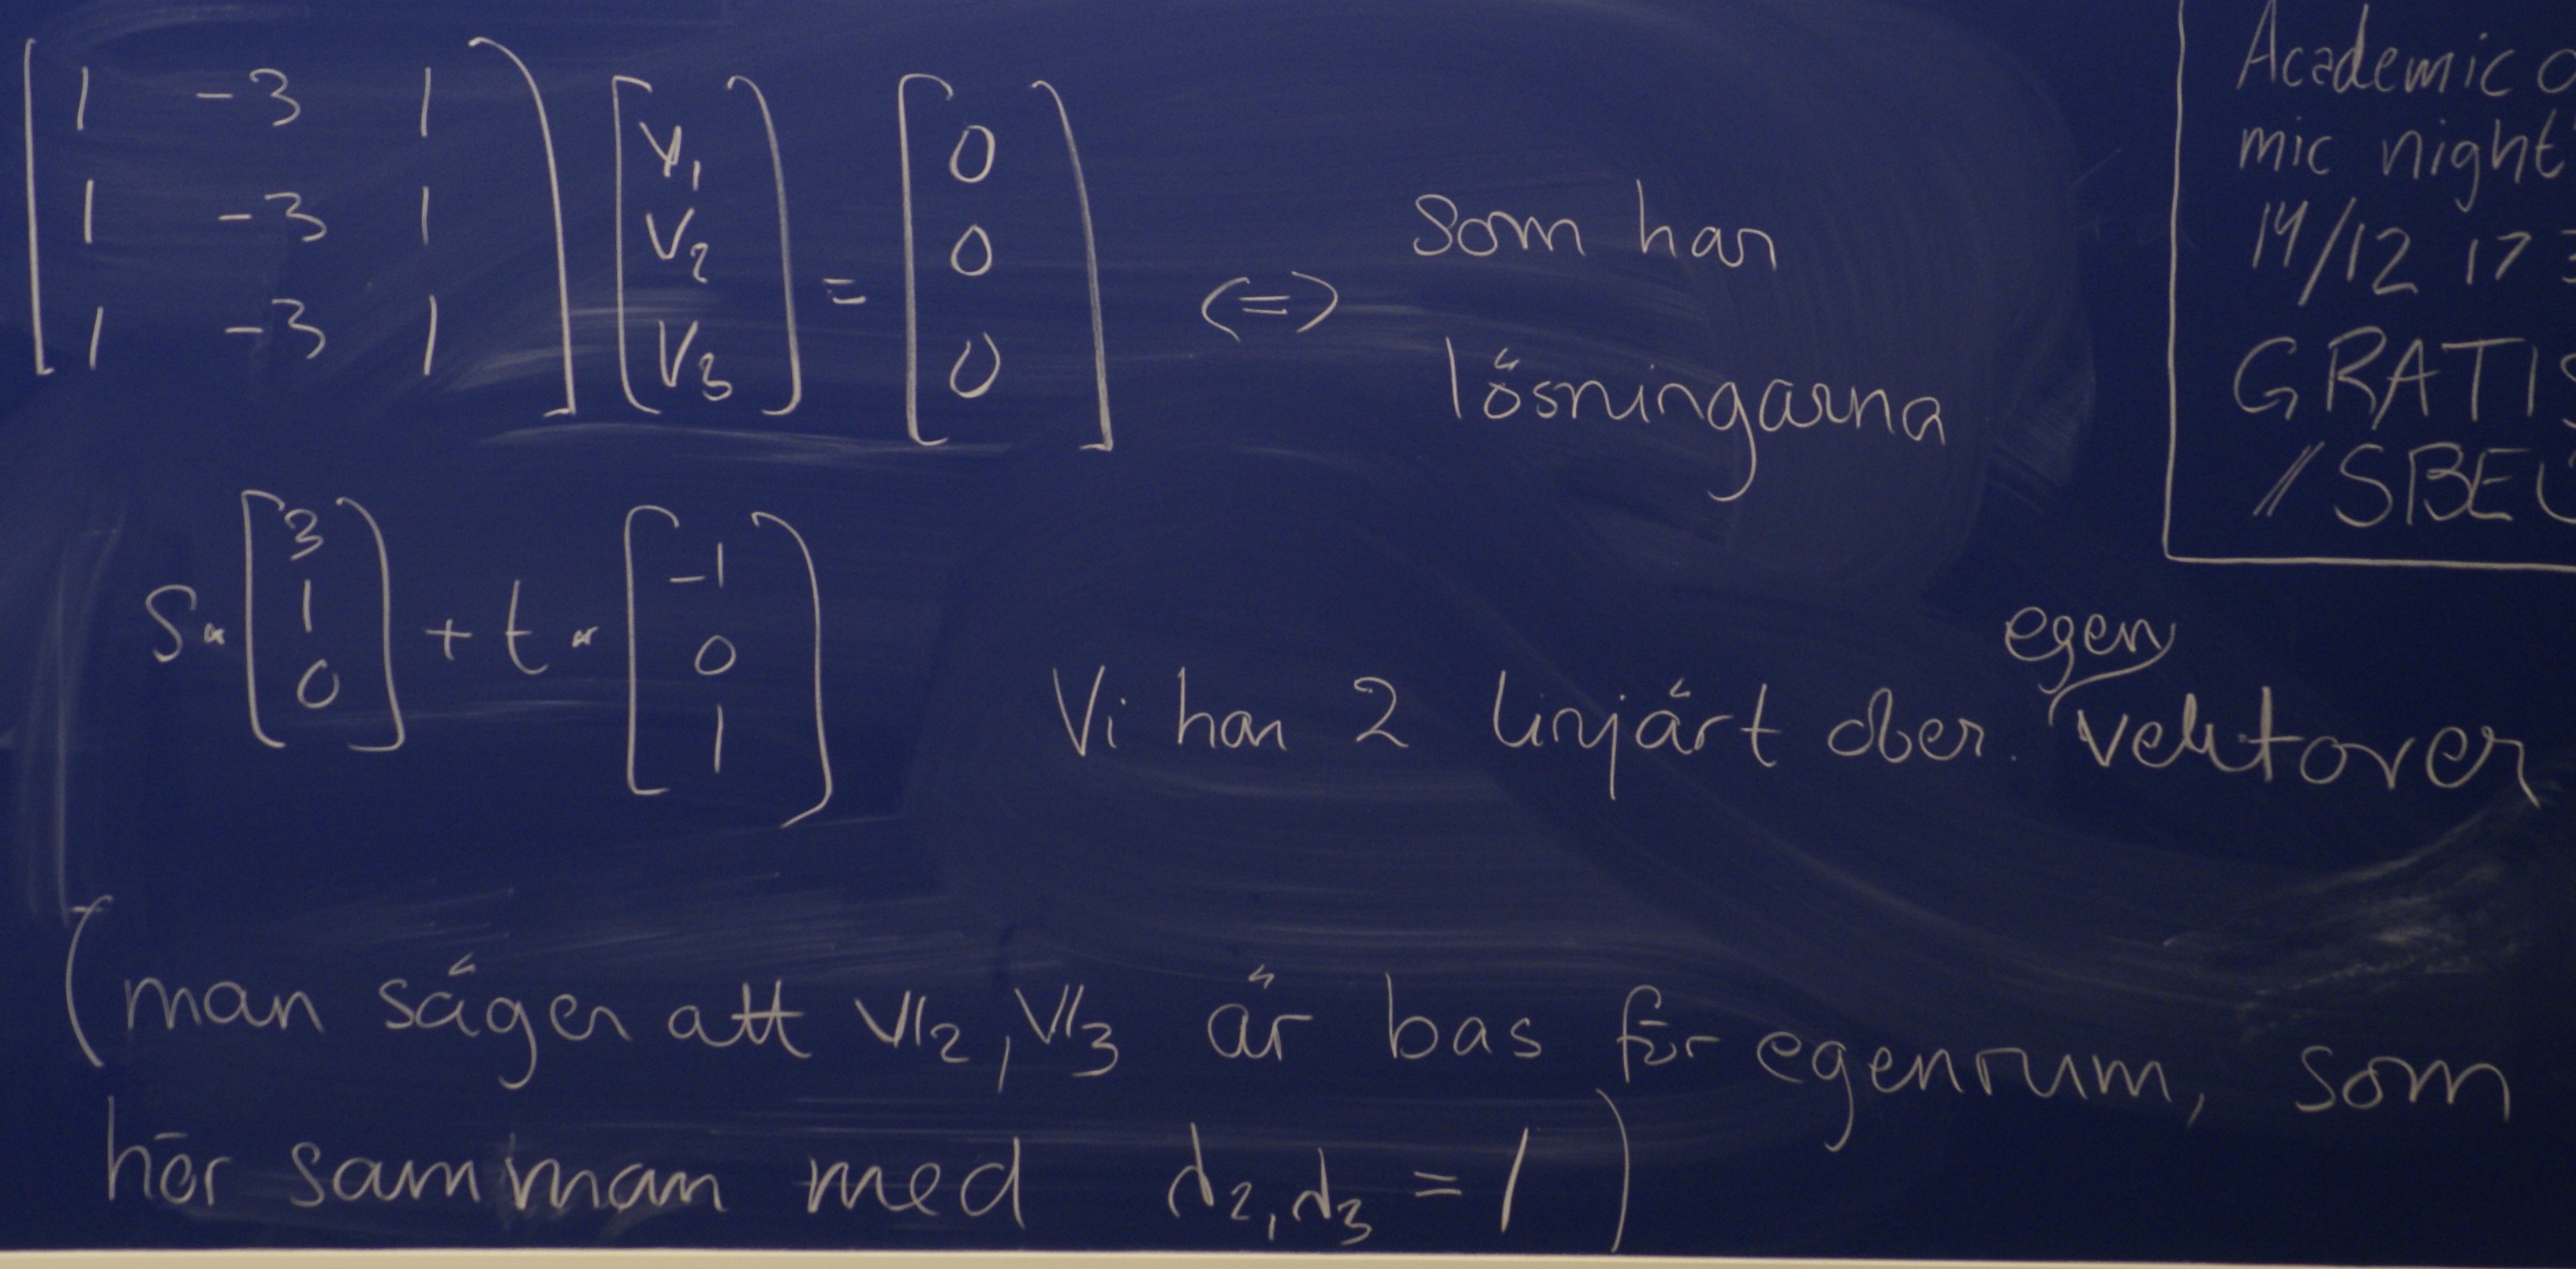 [1 -3 1
1 -3 1
1 -3 1] [v₁
v₂
v₃] = [0
0
0] <=> som har
lösningarna
s · [3
1
0] + t · [-1
0
1]
Vi har 2 linjärt ober. egenvektorer
(man säger att v₂, v₃ är bas för egenrum, som
hör samman med λ₂, λ₃ = 1)
Academic
mic night
14/12 17 3
GRATIS
//SBEU